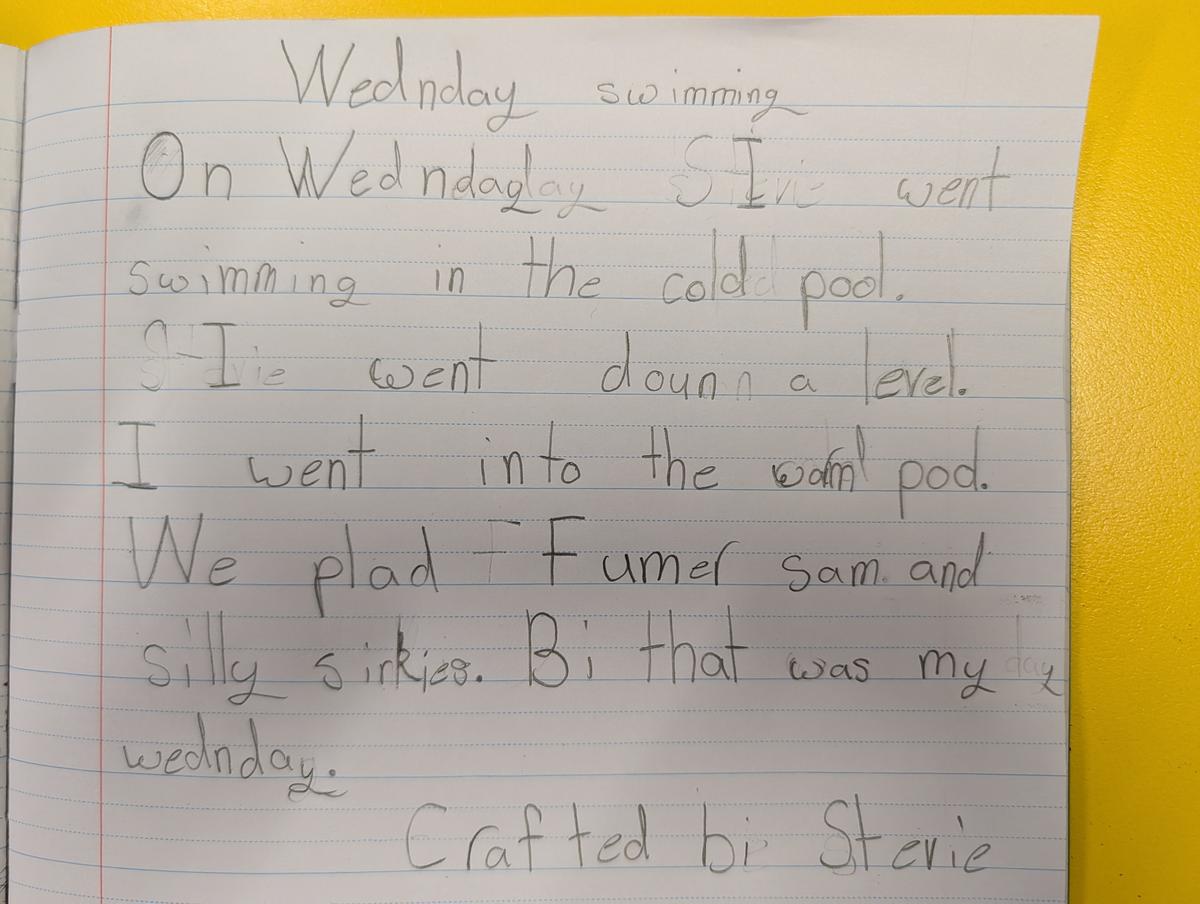 Wednday swimming
On Wednday I went
swimming in the cold pool.
I went doun a level.
I went into the warm pool.
We plad Fumer sam and
silly sirkies. Bi that was my
wednday.
Crafted bi Stevie